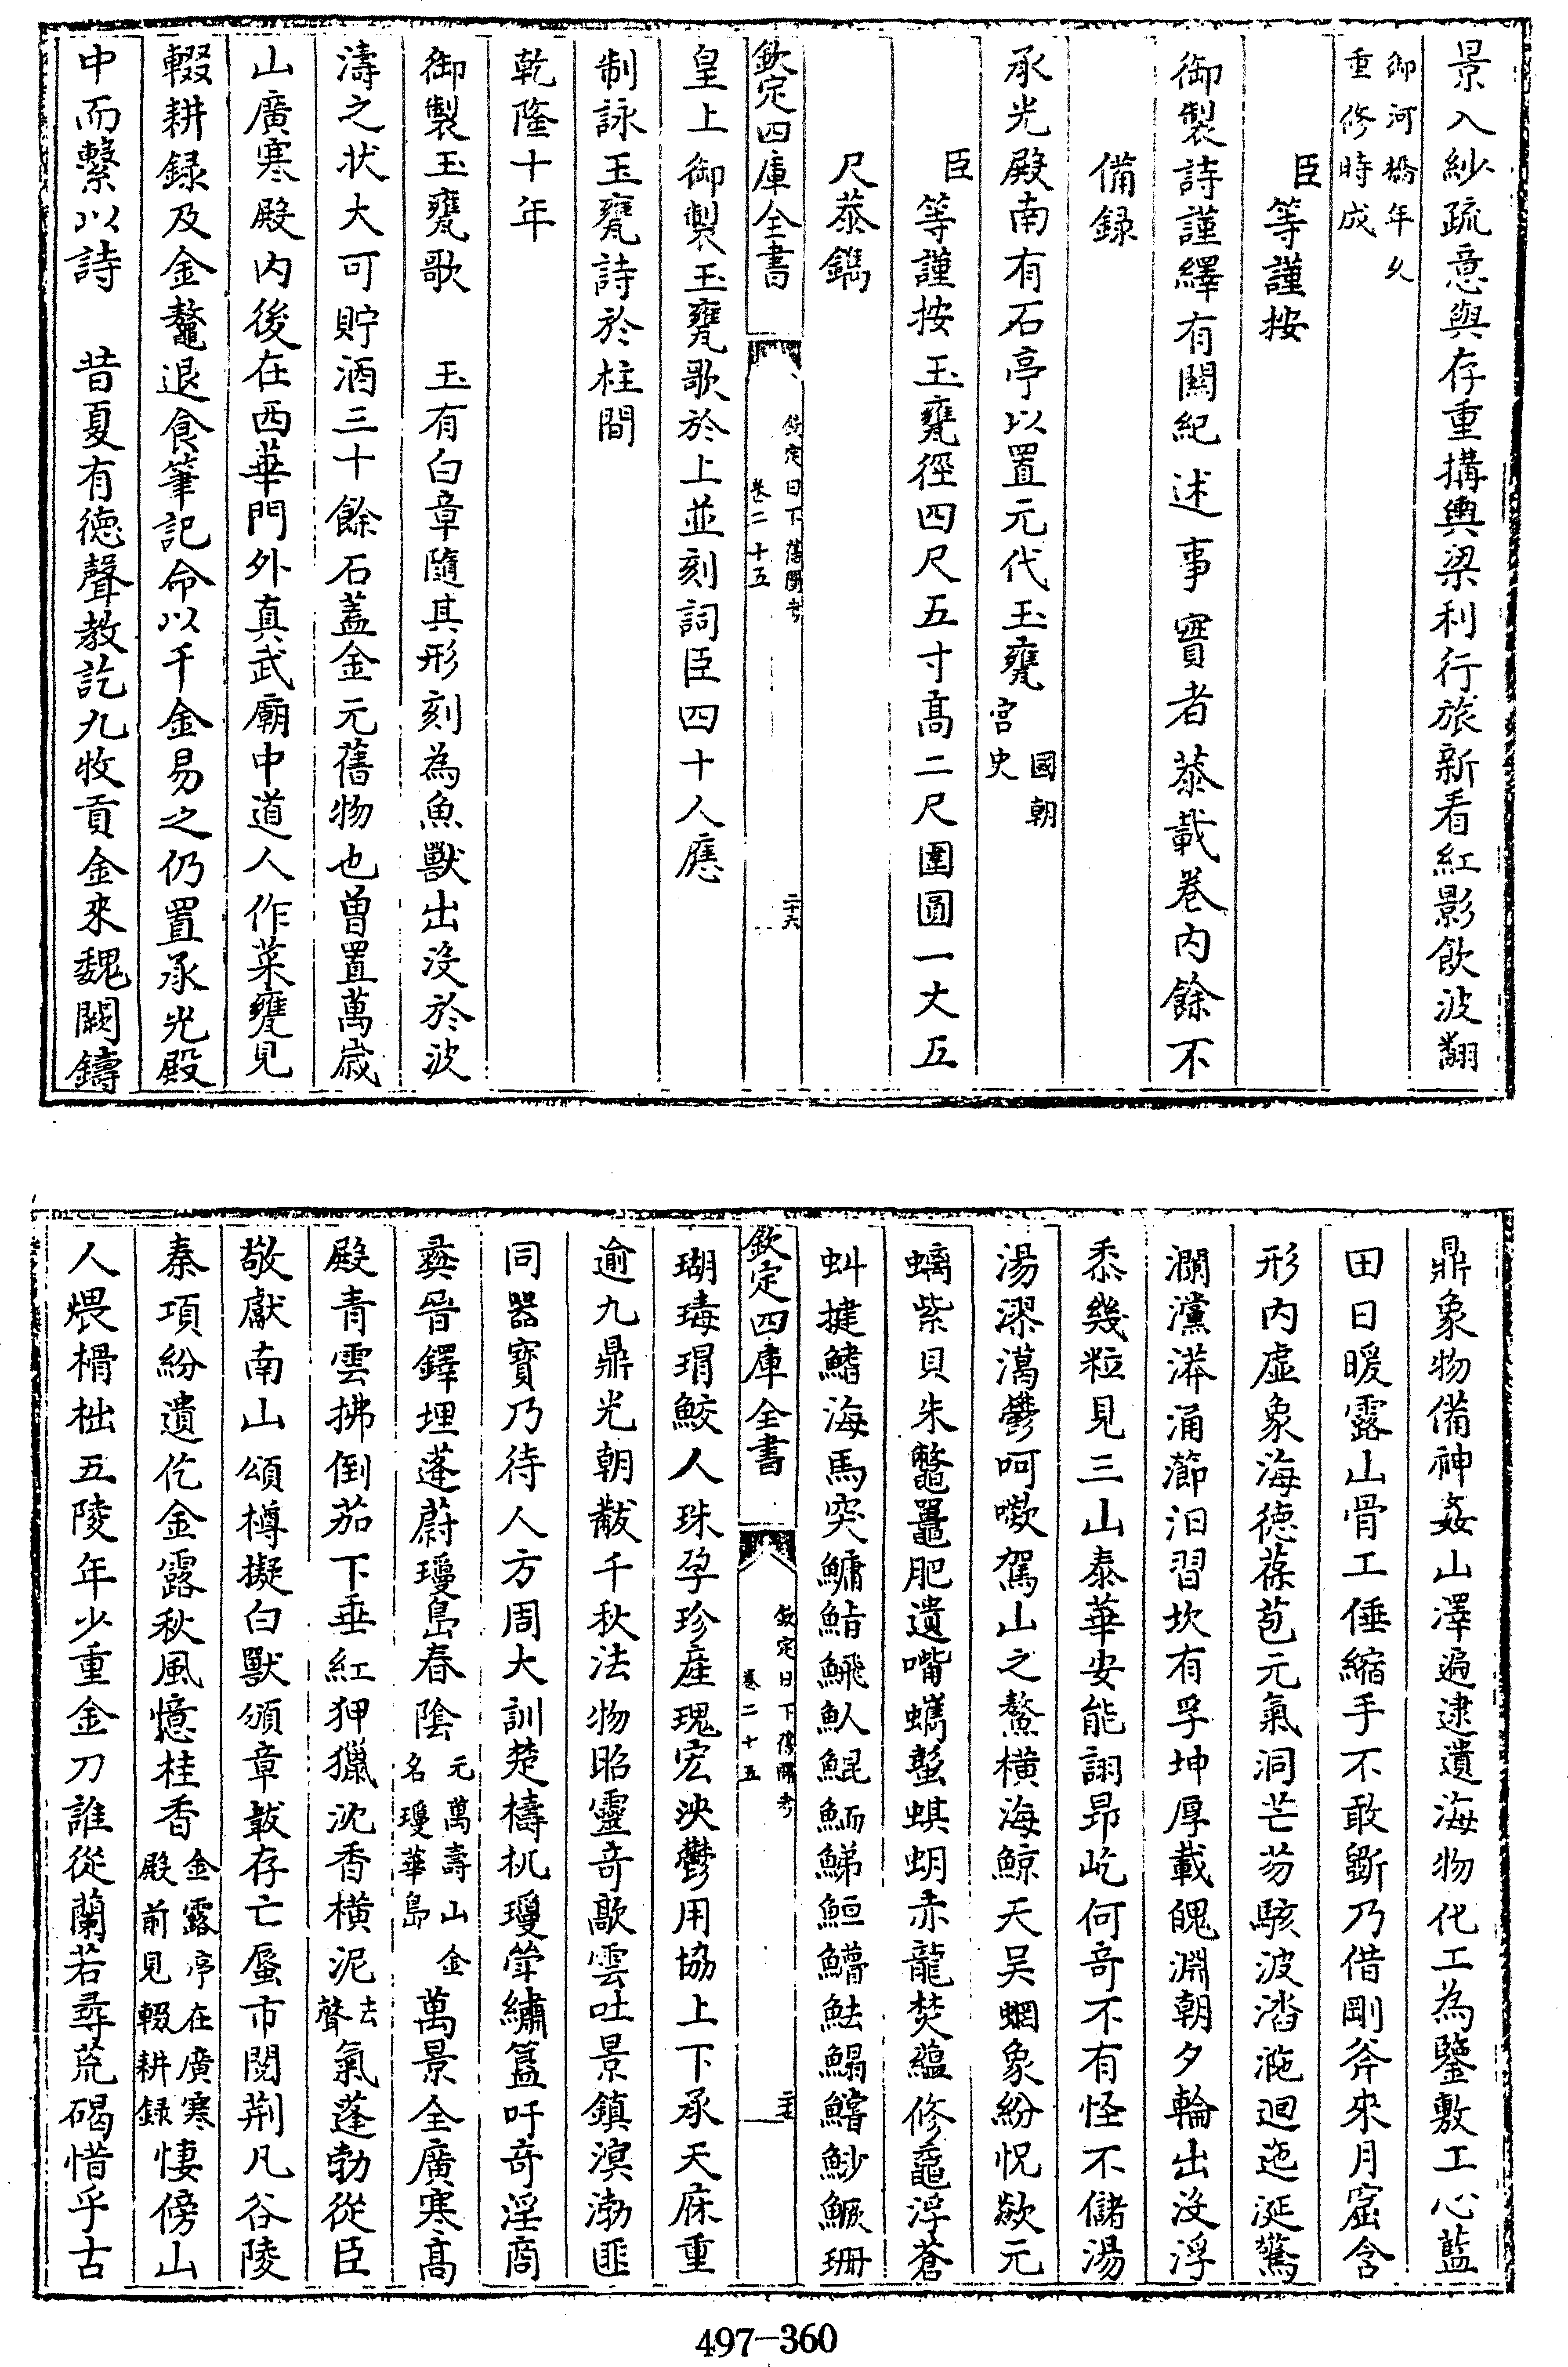 景入紗疏意與存重搆輿梁利行旅新看紅影飲波翻
御河橋年久
重修時成
臣等謹按
御製詩謹繹有關紀述事實者恭載卷内餘不
備録
承光殿南有石亭以置元代玉甕國朝宫史
臣等謹按玉甕徑四尺五寸高二尺圍圓一丈五
尺恭鐫
欽定四庫全書
欽定日下舊聞考
卷二十五
二十六
皇上御製玉甕歌於上並刻詞臣四十人應
制詠玉甕詩於柱間
乾隆十年
御製玉甕歌 玉有白章隨其形刻為魚獸出沒於波
濤之状大可貯酒三十餘石蓋金元舊物也曾置萬嵗
山廣寒殿内後在西華門外真武廟中道人作菜甕見
輟耕録及金鰲退食筆記命以千金易之仍置承光殿
中而繫以詩 昔夏有徳聲教訖九牧貢金來魏闕鑄
鼎象物備神姦山澤遍逮遺海物化工為鑒敷工心藍
田日暖露山骨工倕縮手不敢斵乃借剛斧來月窟含
形内虚象海徳葆苞元氣洞芒芴駭波濤㴰迴迤涎驚
瀾灙漭涌㴉汨習坎有孚坤厚載䰟淵朝夕輪出没浮
黍幾粒見三山泰華安能詡昂屹何奇不有怪不儲湯
湯漻瀥鬱呵嘘駕山之鰲横海鯨天吴蝄象紛怳歘元
螭紫貝朱鼈鼉肥遺嘴蠵蟹蜞蚏赤龍焚藴修龜浮蒼
蚪揵鰭海馬突鱅鮨鱻魞鯤鮞鮷䱎鱛魼鰨鱨魦鱖珊
欽定四庫全書
欽定日下舊聞考
卷二十五
二十七
瑚瑇瑁鮫人珠孕珍産瑰宏泱鬱用協上下承天庥重
逾九鼎光朝黻千秋法物昭靈奇歊雲吐景鎮溟渤匪
同器寶乃待人方周大訓楚檮杌瓊斝繡簋吁奇淫商
彞晉鐸埋蓬蔚瓊島春陰元萬壽山金名瓊華島萬景全廣寒高
殿青雲拂倒茄下垂紅狎獵沈香横泥去聲氣蓬勃從臣
敬獻南山頌樽擬白獸頒章韍存亡蜃市閲荆凡谷陵
秦項紛遺仡金露秋風憶桂香金露亭在廣寒殿前見輟耕録悽傍山
人煨榾柮五陵年少重金刀誰從蘭若尋荒碣惜乎古
497-360